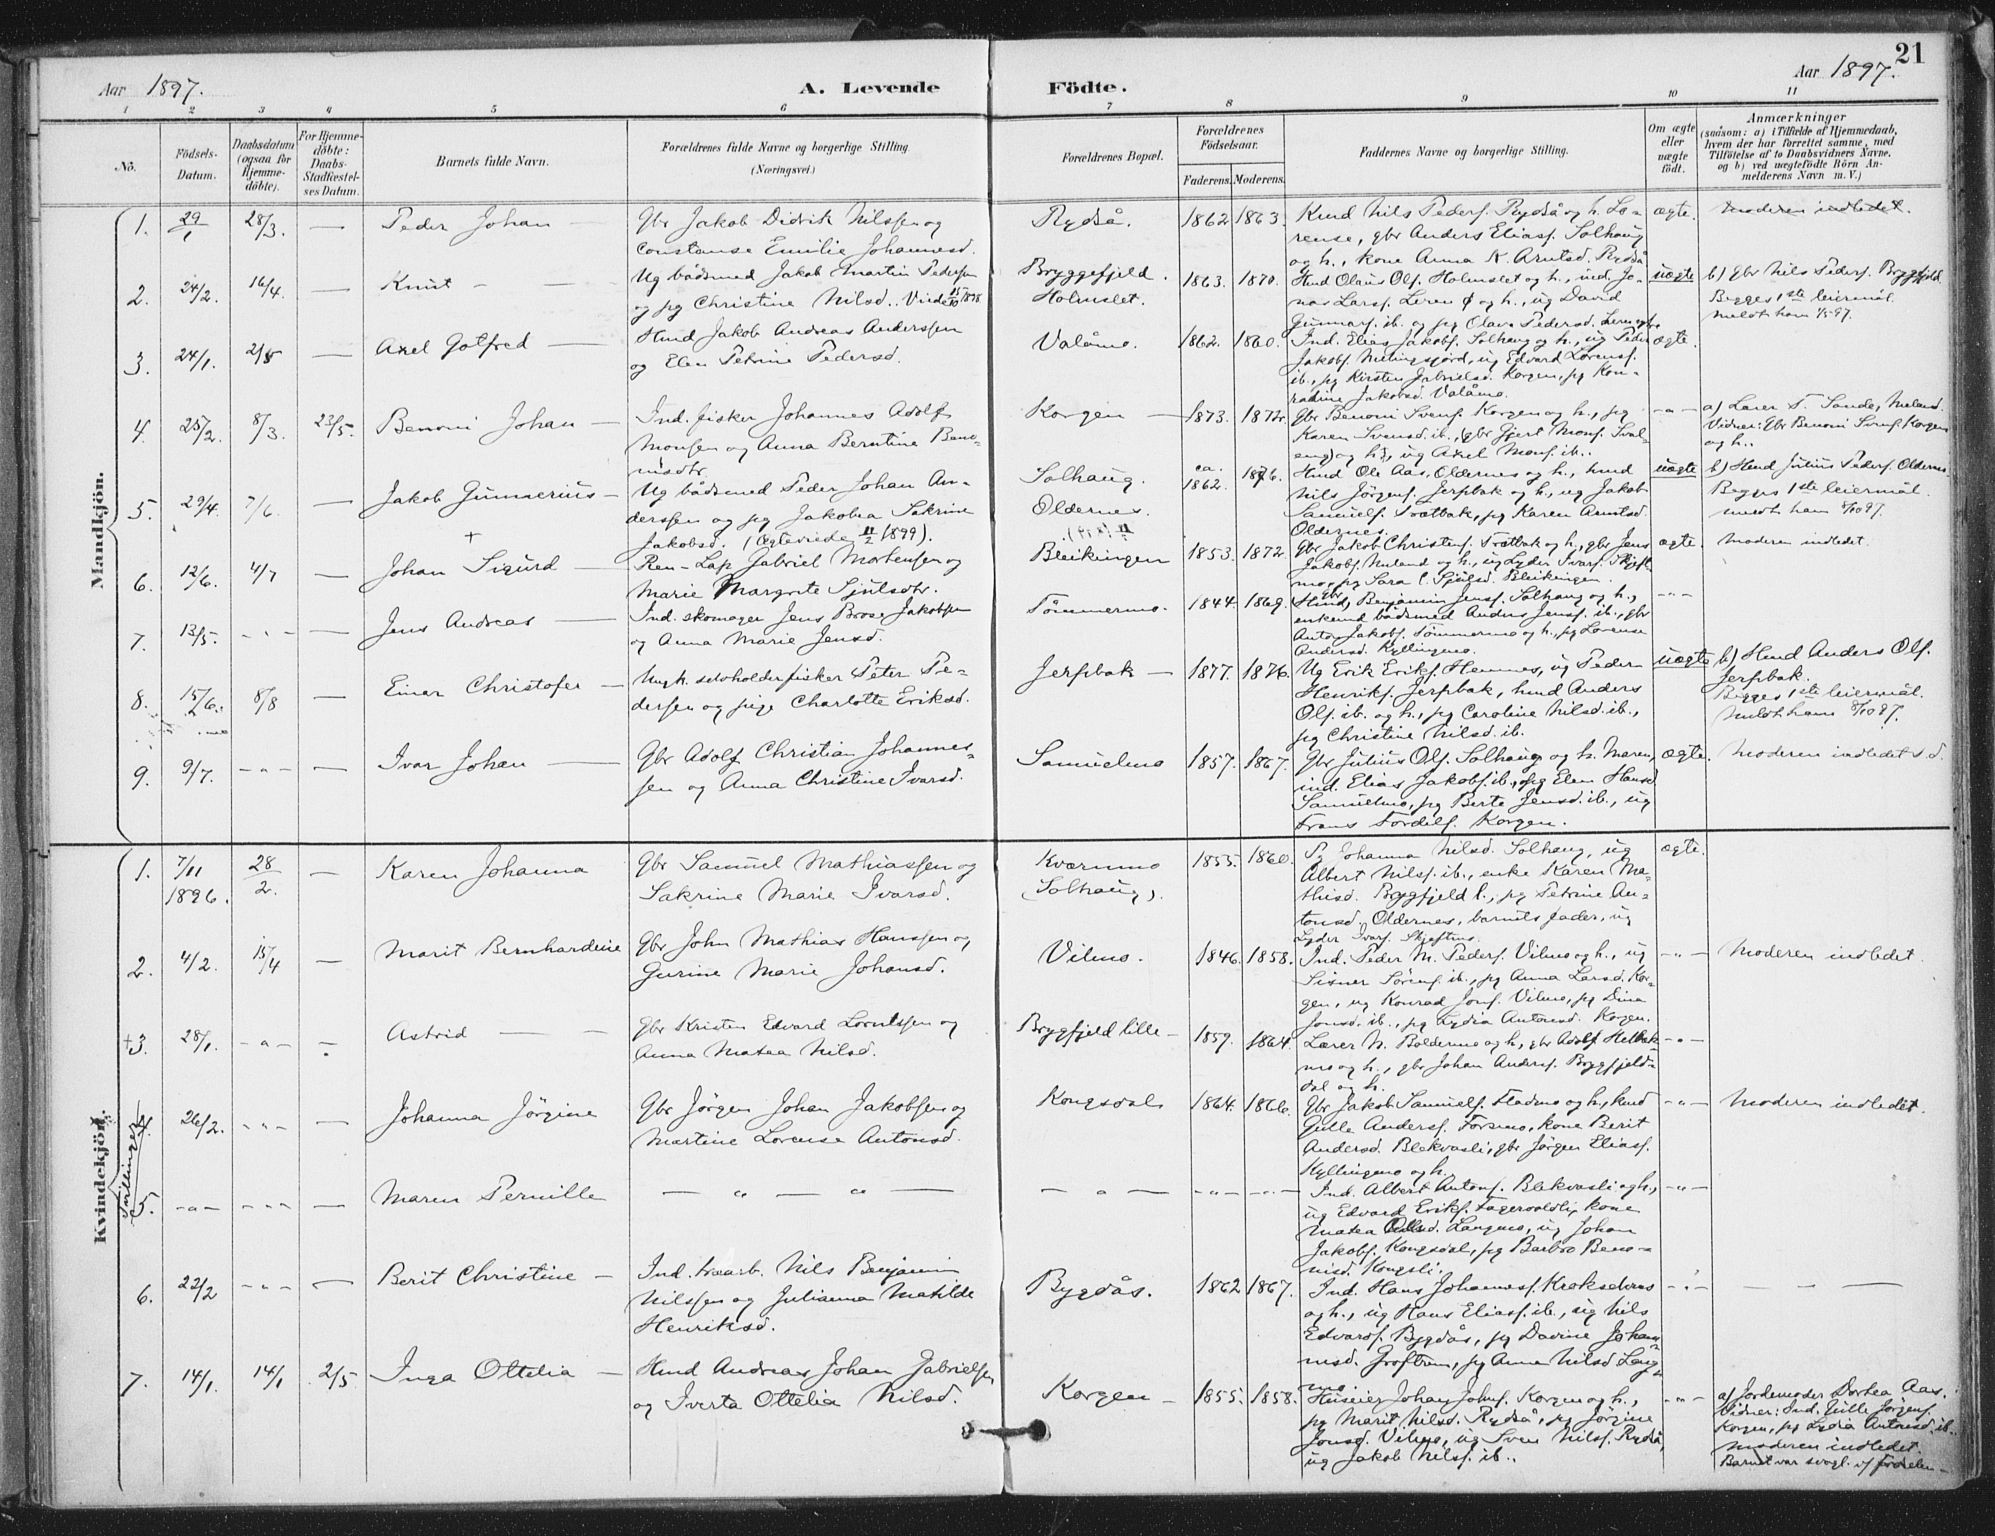 21
Aar 1897. A. Levende Födte. Aar 1897.
1 2 3 4 5 6 7 8 9 10 11
No.
Födsels-
Datum.
Daabsdatum
(ogsaa for
Hjemme-
döbte).
For Hjemme-
döbte:
Daabs-
Stadfæstel-
ses Datum.
Barnets fulde Navn.
Forældrenes fulde Navne og borgerlige Stilling
(Næringsvei.)
Forældrenes Bopæl.
Forældrenes
Födselsaar.
Faderens. Moderens.
Faddernes Navne og borgerlige Stilling.
Om ægte
eller
uægte
födt.
Anmærkninger
(saasom: a) i Tilfælde af Hjemmedaab,
hvem der har forrettet samme, med
Tilföielse af to Daabsvidners Navne.
og b) ved uægtefödte Börn An-
melderens Navn m. V.)
Mandkjön.
1. 29/1 28/3. — Peder Johan —
Gbr Jakob Didrik Nilssen og
Constanse Emilie Johannesd.
Rydså. 1862 1863.
Kmd Nils Peders. Rydså og h. Lo-
rense, gbr Anders Elias. Solhaug
og h., kone Anna K. Arntsd. Rydså
ægte. Moderen indledet.
2. 24/2. 16/4. — Knut —
Ug bådsmed Jakob Martin Pedersen
og pg Christine Nilsd. Viede 15/10 1898
Bryggefjeld.
Holmslet. 1863. 1870.
Hmd Olaus Ols. Holmslet og h., ind. Jo-
nas Lars. Leren ø og h., ug David
Gunnars. ib. og pg Olava Pedersd. Leren
uægte b) gbr Nils Peders. Brygfjeld.
Begges 1ste leiermål.
Meldt ham 1/5 97.
3. 24/1. 2/5 — Axel Gotfred —
Hmd Jakob Andreas Anderssen
og Elen Petrine Pedersd.
Valåmo. 1862. 1860.
Ind. Elias Jakobs. Solhaug og h., ug Peder
Jakobs. ug Edvard Lorens.
ib., pg Kirsten Gabrielsd. Korgen, pg Kon-
radine Jakobsd. Valåmo.
ægte.
4. 25/2. 8/3. 23/5. Benoni Johan —
Ind. fisker Johannes Adolf
Monsen og Anna Berntine Beno-
nisdtr.
Korgen — 1873. 1872.
Gbr Benoni Svens. Korgen og h., pg
Karen Svensd. ib., (gbr Gjert Mons. Sval-
eng) og h., ug Axel Mons. ib..
-"- a) Lærer T. Sande, Meland.
Vidner: Gbr Benoni Svens. Korgen
og h..
5. 29/4. 7/6. — Jakob Gunnerius —
Ug bådsmed Peder Johan An-
derssen og pg Jakobea Sakrine
Jakobsd. (Ægteviede 11/2 1899).
Solhaug.
Oldernes.
ca.
1862. 1876.
Hmd Ole Aas. Oldernes og h., hmd
Nils Jörgens. Jerpbak og h., ug Jakob
Samuels. Trætbak, pg Karen Arntsd.
Oldernes.
uægte b) Hmd Julius Peders. Oldernes
Begges 1ste leiermål.
meldt ham 8/10 97.
6. 12/6. 4/7 — Johan Sigurd —
Ren-Lap Gabriel Mortensen og
Marie Margrete Sjulsdtr.
Bleikingen 1853. 1872.
Gbr Jakob Christens. Trætbak og h., gbr Jens
Jakobs. Meland og h., ug Lyder Ivars. Skjeft-
mo, pg Sara C. Sjulsd. Bleikingen.
ægte. Moderen indledet.
7. 13/5. -"- — Jens Andreas —
Ind. skomager Jens Brose Jakobsen
og Anna Marie Jensd.
Tömmermo. 1844. 1869.
Hmd, Benjamin Jens. Solhaug og h.,
enkemd bådsmed Anders Jens. ib., gbr
Anton Jakobs. Tömmermo og h., pg Lorense
Andersd. Kyllingmo.
-"-
8. 15/6. 8/8 — Einar Christofer —
Ungk. selvholderfisker Peter Pe-
dersen og pige Charlotte Eriksd.
Jerpbak — 1877. 1876.
Ug Erik Eriks. Hemnes, ug Peder
Henriks. Jerpbak, hmd Anders
Ols. ib. og h., pg Caroline Nilsd. ib.,
pg Christine Nilsd. ib.
uægte b) Hmd Anders Ols.
Jerpbak.
Begges 1ste leiermål.
Meldt ham 8/10 97.
9. 9/7. -"- — Ivar Johan —
Gbr Adolf Christian Johannes-
sen og Anna Christine Ivarsd.
Samuelmo 1857. 1867.
Gbr Julius Ols. Solhaug og h. Maren,
ind. Elias Jakobs. ib., pg Elen Hansd.
Samuelmo, pg Berte Jensd. ib., ug
Frans Tordils. Korgen.
ægte. Moderen indledet s.d.
Kvindekjön.
1. 7/11
1896. 28/2. — Karen Johanna
Gbr Samuel Mathiassen og
Sakrine Marie Ivarsd.
Kværnmo
(Solhaug). 1855. 1860.
Pg Johanna Nilsd. Solhaug, ug
Albert Nils. ib., enke Karen Ma-
thisd. Brygfjeld l., pg Petrine An-
tonsd. Oldernes, barnets fader, ug
Lyder Ivars. Skjeftmo.
ægte.
2. 4/2. 15/4 — Marit Bernhardine
Gbr John Mathias Hanssen og
Gurine Marie Johansd.
Vilmo. 1846. 1858.
Ind. Peder M. Peders. Vilmo og h., ug
Sisner Sörens. ib., pg Anna Larsd. Kor-
gen, ug Konrad Jons. Vilmo, pg Dina
Jonsd. ib., pg Lydia Antonsd. Korgen.
-"- Moderen indledet.
+3. 28/1. -"- — Astrid —
Gbr Kristen Edvard Lorntssen og
Anna Matea Nilsd.
Brygfjeld lille — 1859. 1864.
Lærer N. Boldermo og h., gbr Adolf
mo og h., gbr Johan Anders. Brygfjeld-
dal og h.
-"-
Tvillinger
4. 26/2. -"- — Johanna Jörgine
Gbr Jörgen Johan Jakobsen og
Martine Lorense Antonsd.
Kongsdal 1864. 1866.
Gbr Jakob Samuels. Stadmo og h., hmd
Gulle Anders. Forsmo, kone Berit
Andersd. Blekvasli, gbr Jörgen Elias.
Kyllingmo og h.
-"- Moderen indledet.
5. -"- -"- — Maren Pernille
— " — " —
— " — -"- -"-
Ind. Albert Antons. Blekvasli og h.,
ug Edvard Eriks. Fagervoldli, kone
Matea Olsd. Langmo, ug Johan
Jakobs. Kongsdal, pg Barbro Beno-
nisd. Kongsli.
-"-
6. 22/2 -"- — Berit Christine —
Ind. træarb. Nils Benjamin
Nilssen og Julianna Matilde
Henriksd.
Bygdås. 1862 1867.
Ind. Hans Johannes. Kroksednes
og h., ug Hans Elias. ib., ug Nils
Edvards. Bygdås, pg Davine Johan-
nisd. Groftrem, pg Anna Nilsd. Lang-
mo
-"- — — —
7. 14/1. 14/1 2/5. Inga Ottelia —
Hmd Andreas Johan Gabrielsen
og Iverta Ottelia Nilsd.
Korgen — 1855. 1858.
Huseier Johan Johns. Korgen og h.,
pg Marit Nilsd. Rydså, pg Jörgine
Jonsd. Vilmo, ug Sven Nils. Rydså,
ug Jakob Nils. ib..
-"- a) Jordemoder Dortea Aas.
Vidner: Ind. Gulle Jörgens.
Korgen, pg Lydia Antonsd. ib..
Moderen indledet.
Barnet var svagt v/ födselen —